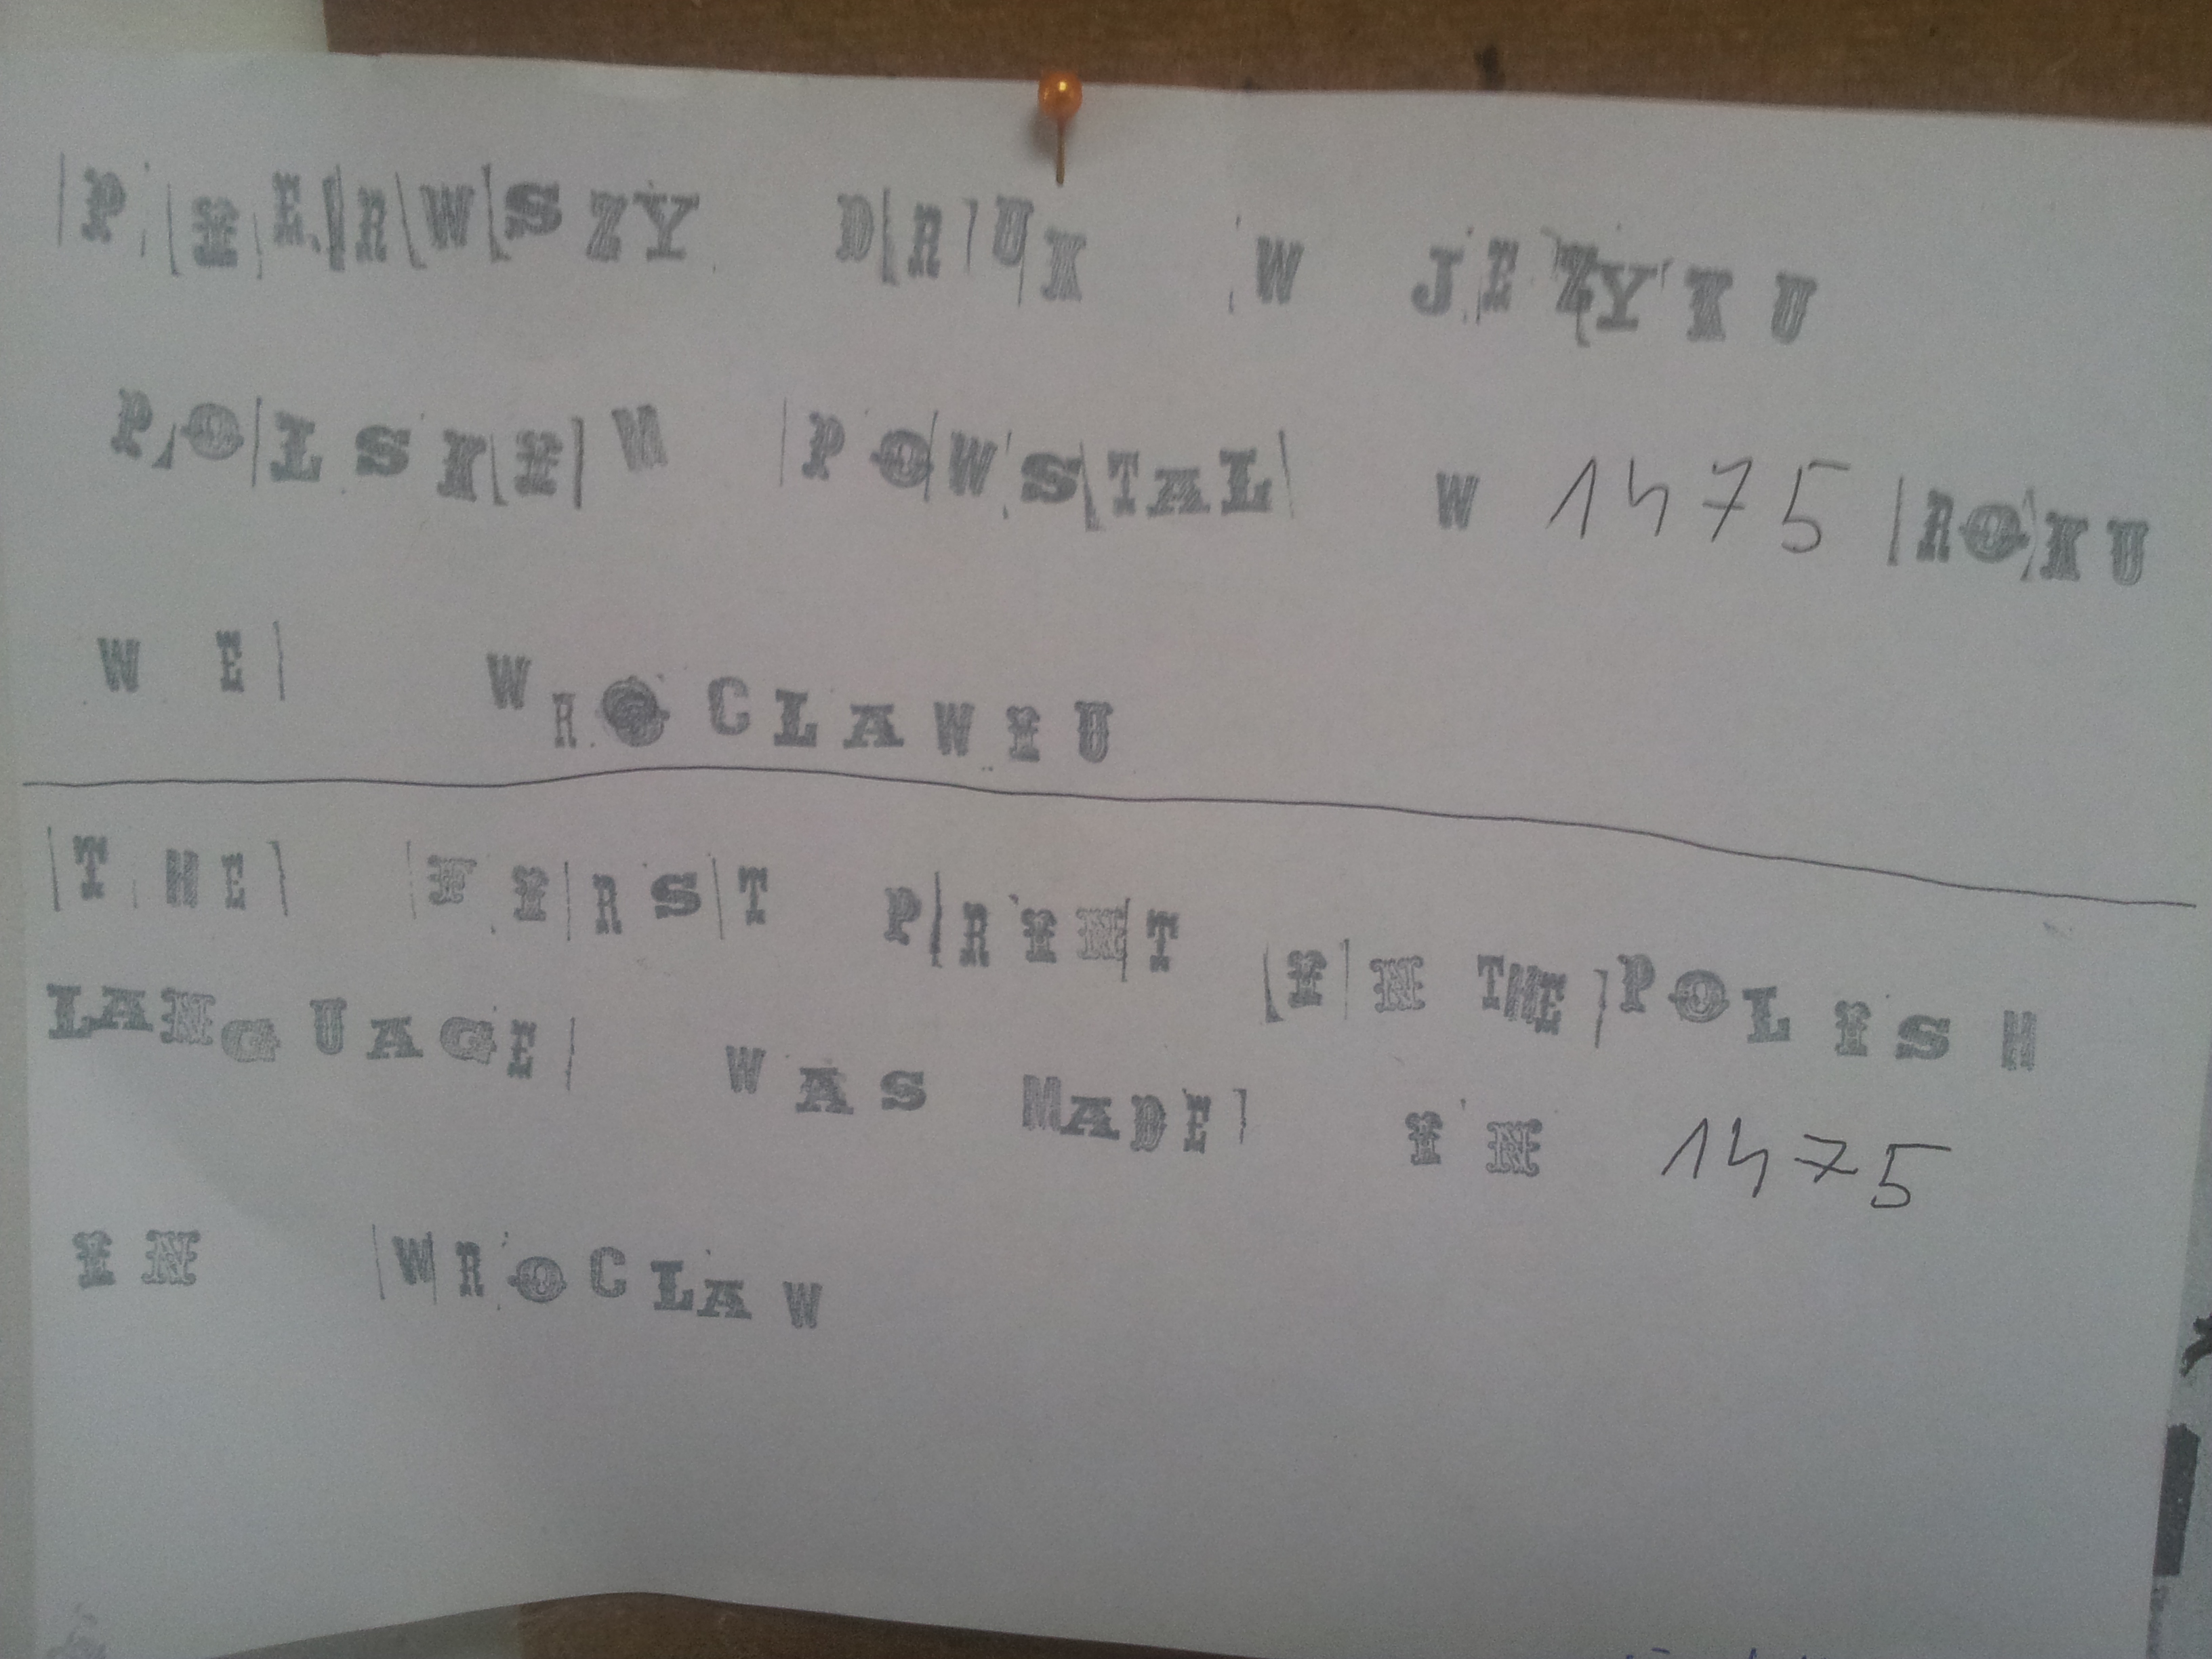 PIERWSZY DRUK W JEZYKU
POLSKIM POWSTAL W 1475 ROKU
WE WROCLAWIU
THE FIRST PRINT IN THE POLISH
LANGUAGE WAS MADE IN 1475
IN WROCLAW